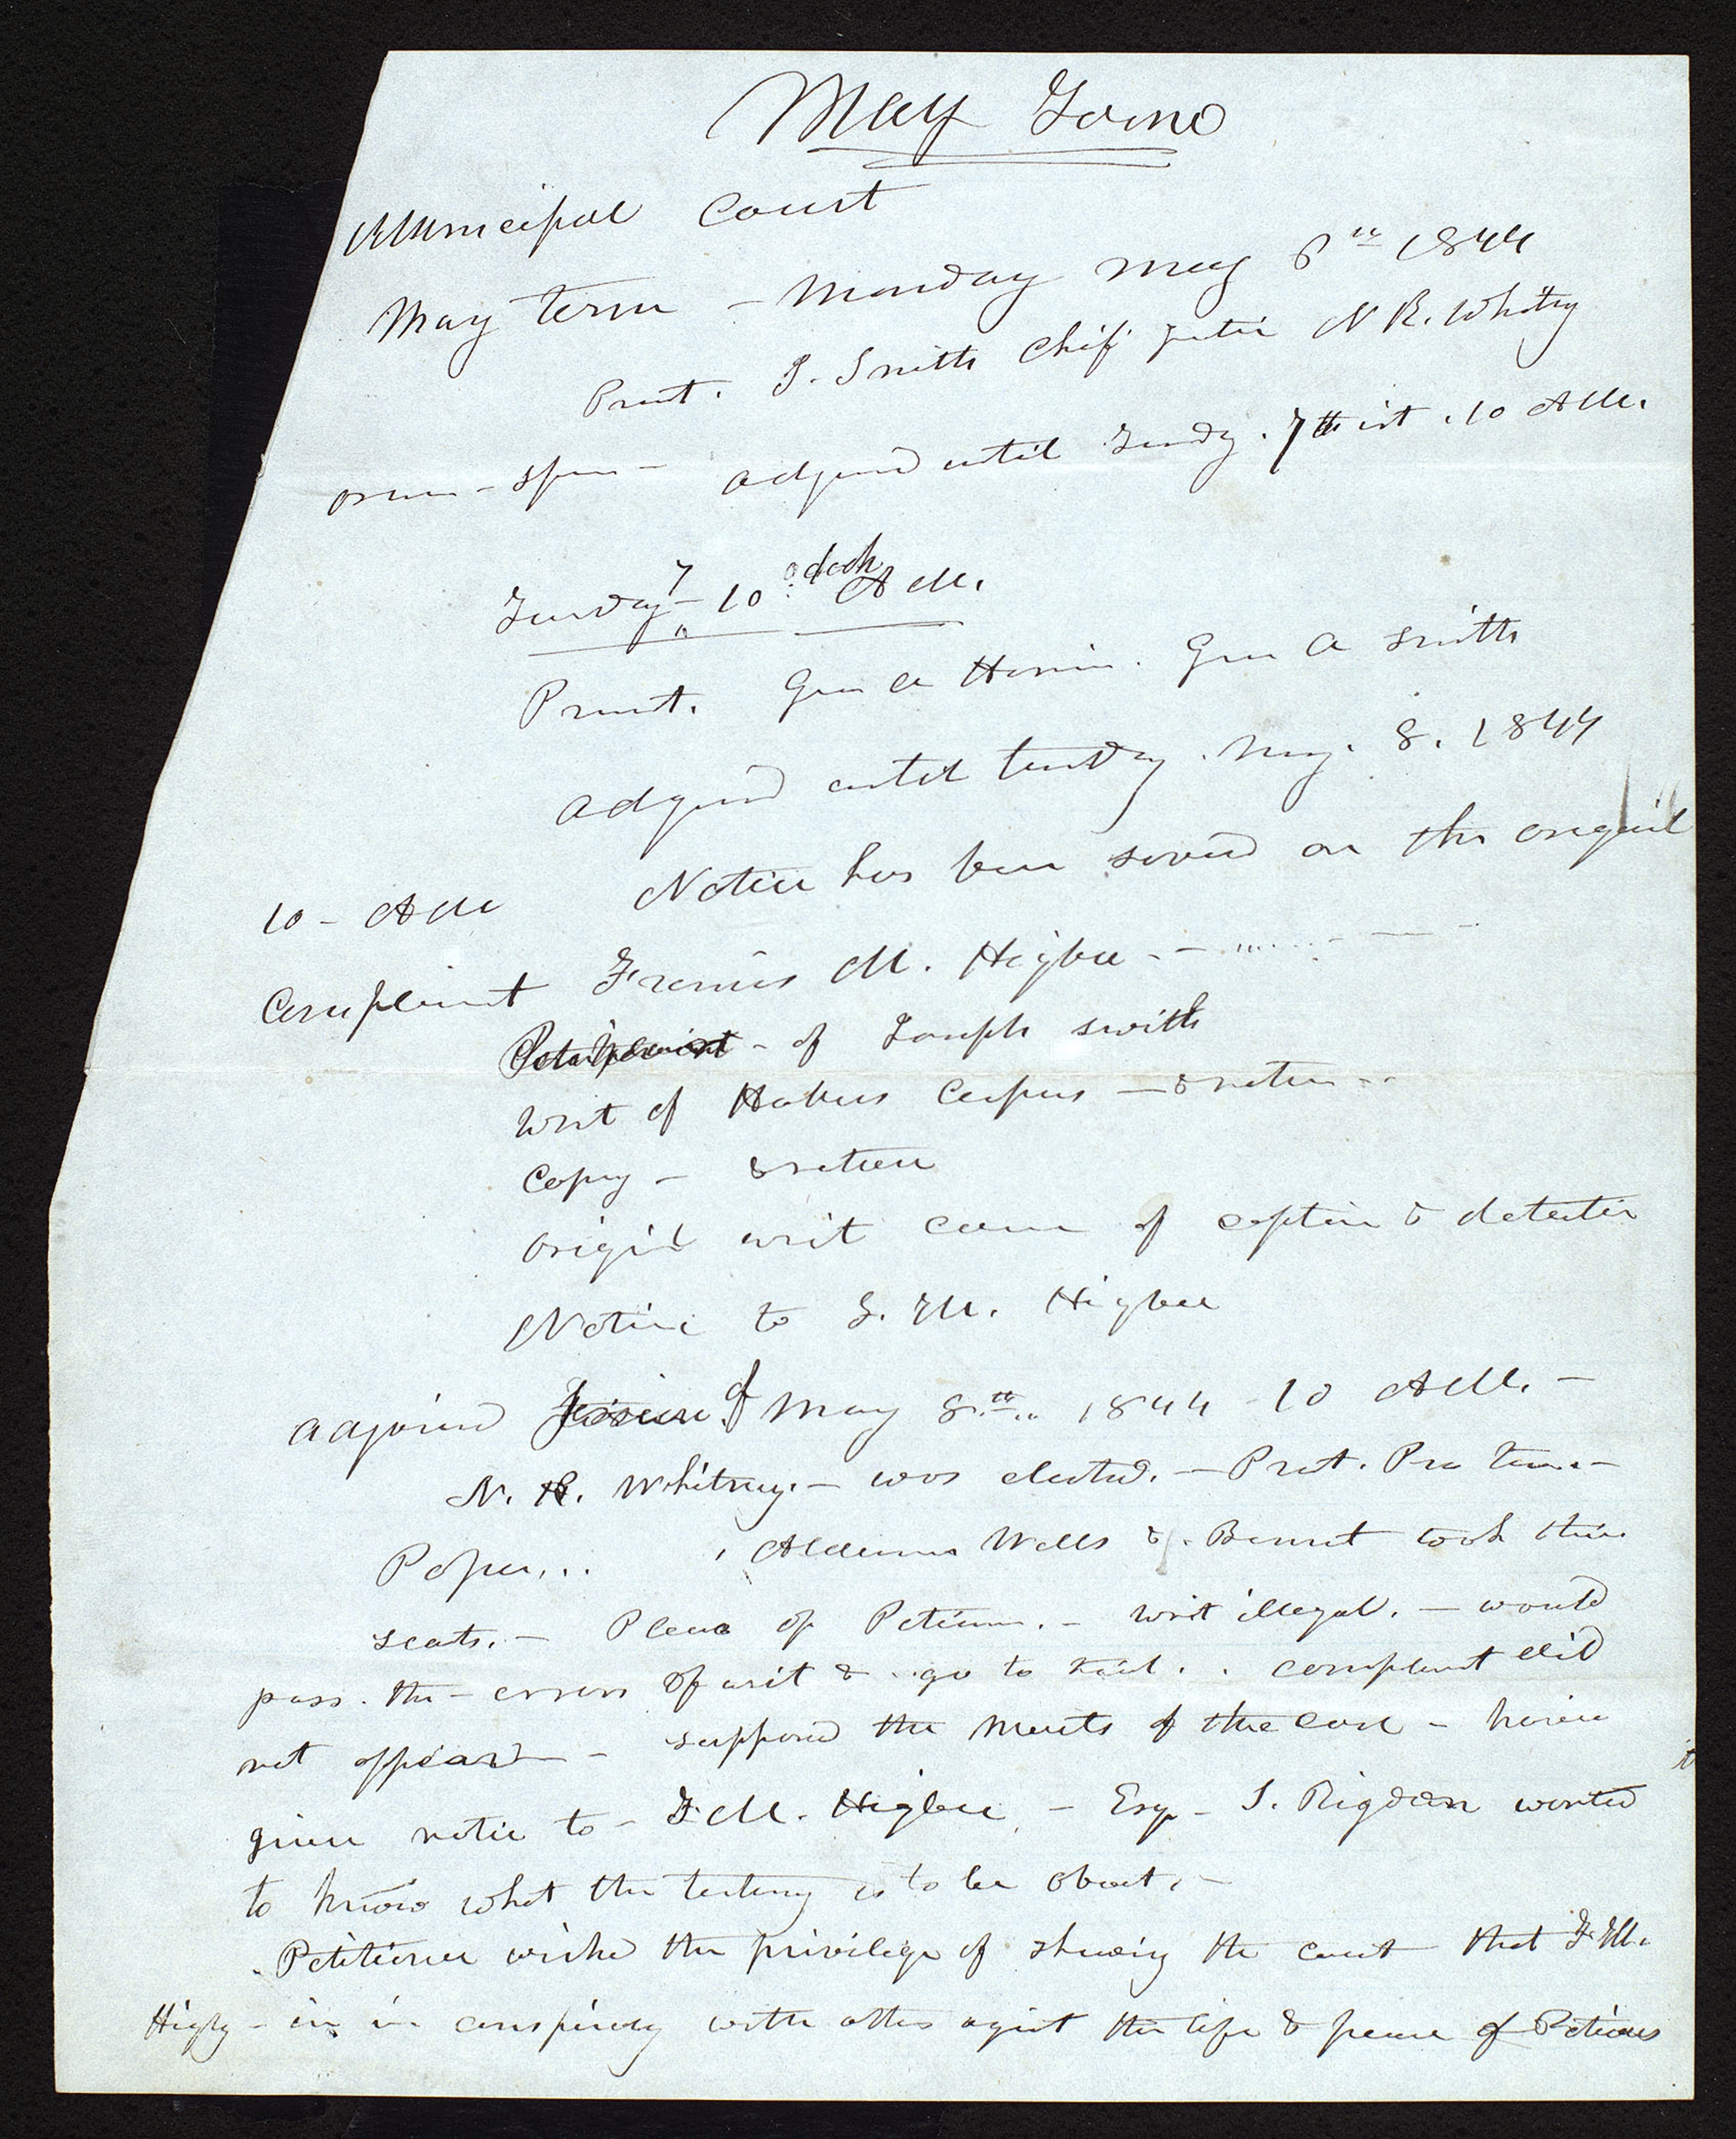 May Term
Municipal Court
May term – Monday May 6th 1844
Prest. J. Smith Chif Justice N K. Whitny
orson – spen – adjourd until Tuesdy. 7th ist. 10 AM.
Tuesday 7 – 10 o clock AM.
Present. Geo W Harris. Geo A Smith
adjourd until . May. 8. 1844
10 – AM Notice has been served on the origial
Complaint Francis M. Higbee. –
– of Joseph Smith
Writ of Habeus Corpus – & return
Copy – & return
origil writ cause of caption & detentin
Notice to F. M. Higbee
adjourned Session of May 8th 1844 10 AM. –
N. K. Whitney. – was elected. – Prest. Pro tem. –
Paper... Aldermen Wells & Bennet took their
seats. – Pleas of Petition. – writ illegal. – would
pass. the – errors of writ & go to trial.. complaint did
not appear – – support the merits of the case – having
given notice to – F M. Higbee – Esqr – S. Rigdon wanted
to know what the testimny is to be about. –
Petitioner wished the privilege of showing the court that F. M.
Higby – is in conspiricy with others agist the life & peace of Petitioner